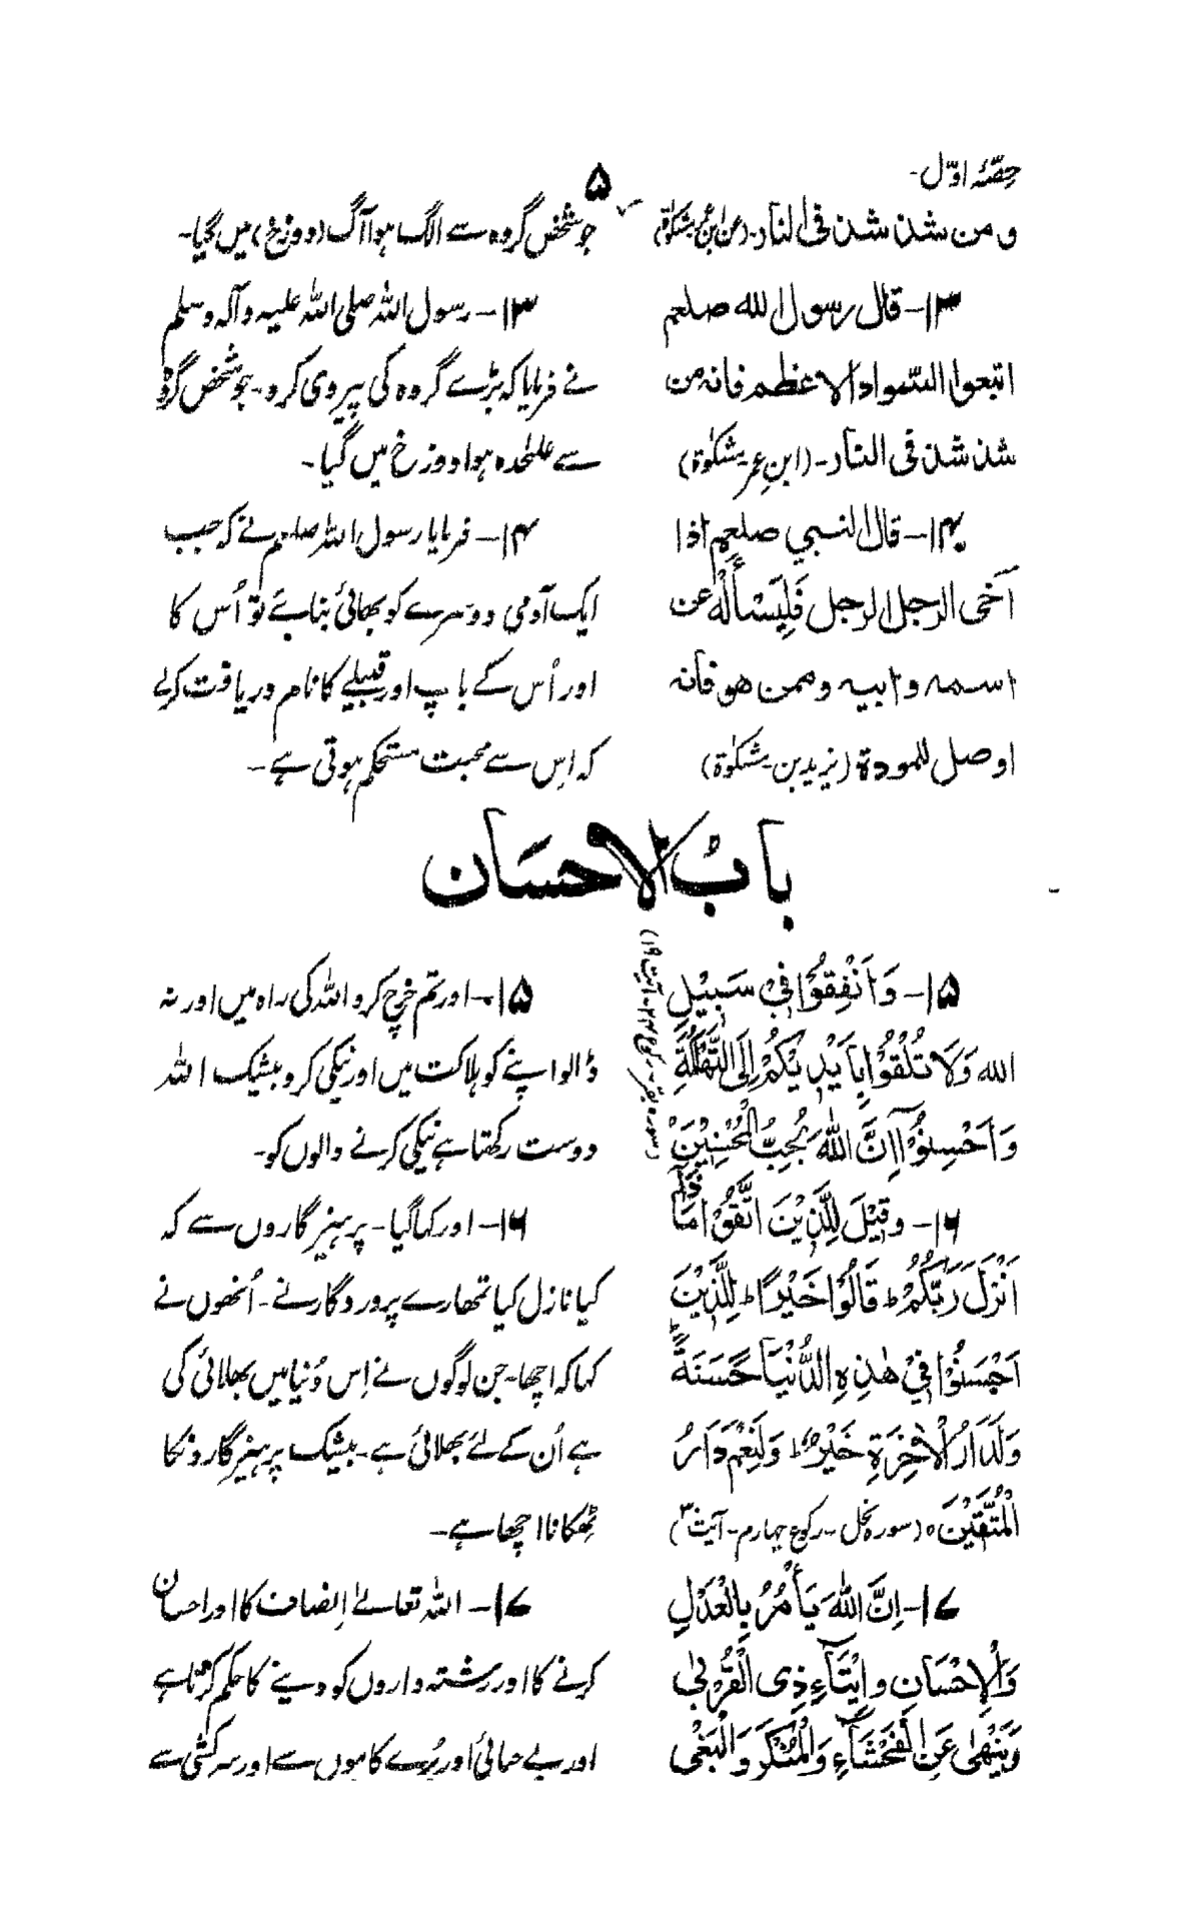 حصّۂ اوّل-
۵
ومن شذ شذ فی النار-(عن ابن عمر مشکوٰۃ)
جو شخص گروہ سے الگ ہوا آگ (دوزخ) میں گیا-
۱۳- قال رسول الله صلعم
اتبعوا السّواد الاعظم فانه من
شذ شذ فی النار-(ابنِ عمر مشکوٰۃ)
۱۳- رسول اللہ صلی اللہ علیہ وآلہ وسلم
نے فرمایا کہ بڑے گروہ کی پیروی کرو- جو شخص گروہ
سے علٰحدہ ہوا دوزخ میں گیا-
۱۴- قال النبی صلعم اذا
آخی الرجل الرجل فَلْیَسْأَلْهُ عن
اسمه و ابیه وممن هو فانه
اوصل للمودة (یزید بن- مشکوٰۃ)
۱۴- فرمایا رسول اللہ صلعم نے کہ جب
ایک آدمی دوسرے کو بھائی بنائے تو اُس کا
اور اُس کے باپ اور قبیلے کا نام دریافت کرلے
کہ اِس سے محبت مستحکم ہوتی ہے-
بابُ الاحسَان
۱۵- وَاَنْفِقُوْا فِیْ سَبِیْلِ
الله وَلَا تُلْقُوْا بِاَیْدِیْکُمْ اِلَی التَّهْلُکَةِ
وَاَحْسِنُوْا اِنَّ اللهَ یُحِبُّ الْمُحْسِنِیْنَ
(سورہ بقر- رکوع ۲۴- آیت ۱۹)
۱۵- اور تم خرچ کرو اللہ کی راہ میں اور نہ
ڈالو اپنے کو ہلاکت میں اور نیکی کرو بیشک اللہ
دوست رکھتا ہے نیکی کرنے والوں کو-
۱۶- وقِیْلَ لِلَّذِیْنَ اتَّقَوْا مَاذَا
اَنْزَلَ رَبُّکُمْ ط قَالُوْا خَیْرًا ط لِلَّذِیْنَ
اَحْسَنُوْا فِیْ هٰذِهِ الدُّنْیَا حَسَنَةً ط
وَلَدَارُ الْاٰخِرَةِ خَیْرٌ ط وَلَنِعْمَ دَارُ
الْمُتَّقِیْنَ ٥ (سورہ نحل- رکوع چہارم- آیت ۳)
۱۶- اور کہا گیا- پرہیزگاروں سے کہ
کیا نازل کیا تمہارے پروردگار نے- اُنھوں نے
کہا کہ اچھا- جن لوگوں نے اِس دُنیا میں بھلائی کی
ہے اُن کے لئے بھلائی ہے- بیشک پرہیزگارونکا
ٹھکانا اچھا ہے-
۱۷- اِنَّ اللهَ یَأْمُرُ بِالْعَدْلِ
وَالْاِحْسَانِ وَاِیْتَآءِ ذِی الْقُرْبٰی
وَیَنْهٰی عَنِ الْفَحْشَآءِ وَالْمُنْکَرِ وَالْبَغْیِ
۱۷- اللہ تعالےٰ اِنصاف کا اور احسان
کرنے کا اور رشتہ داروں کو دینے کا حکم کرتا ہے
اور بے حیائی اور بُرے کاموں سے اور سرکشی سے